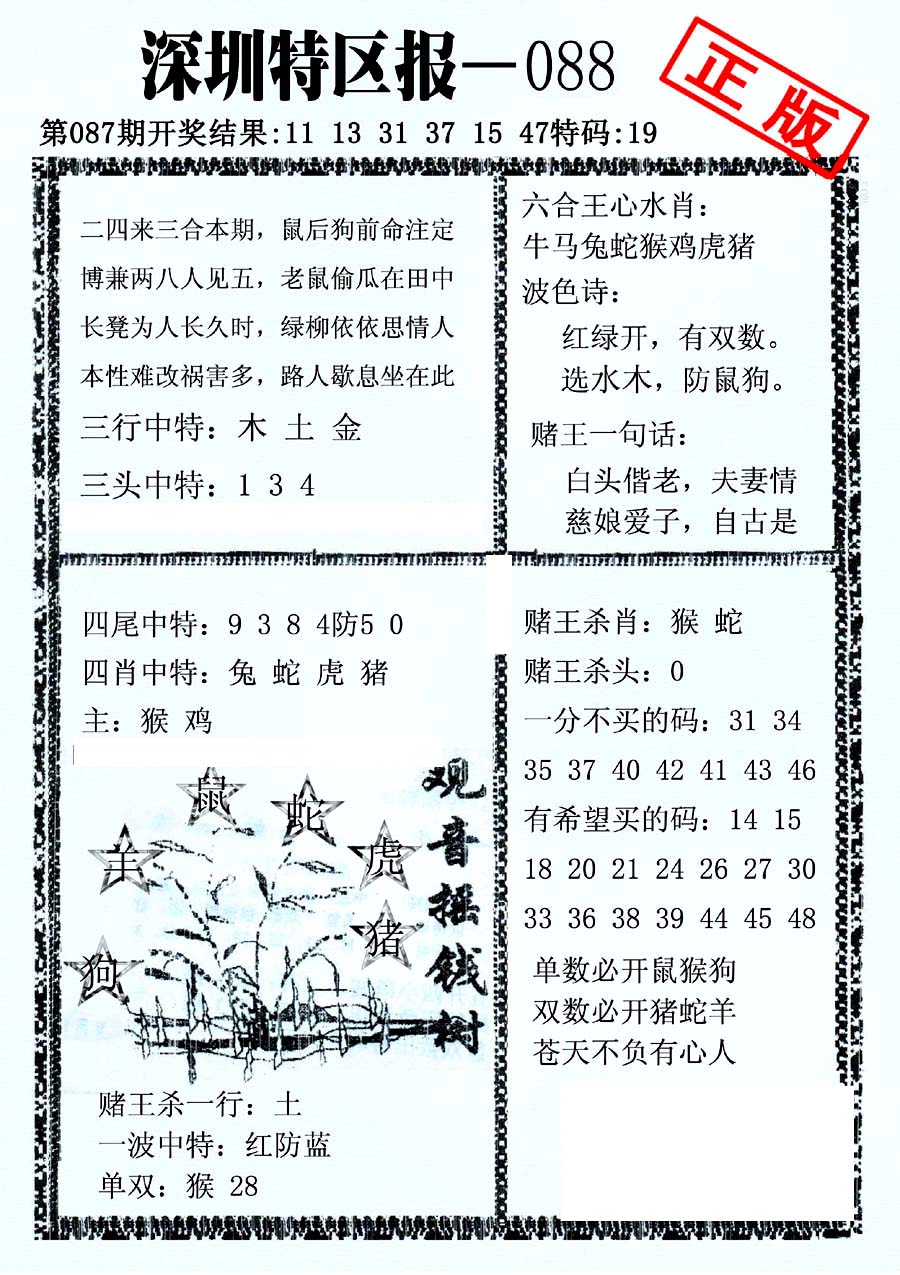 深圳特区报—088
正版
第087期开奖结果:11 13 31 37 15 47特码:19
二四来三合本期，鼠后狗前命注定
博兼两八人见五，老鼠偷瓜在田中
长凳为人长久时，绿柳依依思情人
本性难改祸害多，路人歇息坐在此
三行中特：木 土 金
三头中特：1 3 4
六合王心水肖：
牛马兔蛇猴鸡虎猪
波色诗：
红绿开，有双数。
选水木，防鼠狗。
赌王一句话：
白头偕老，夫妻情
慈娘爱子，自古是
四尾中特：9 3 8 4防5 0
四肖中特：兔 蛇 虎 猪
主：猴 鸡
鼠
蛇
羊
虎
猪
狗
观音摇钱树
赌王杀一行：土
一波中特：红防蓝
单双：猴 28
赌王杀肖：猴 蛇
赌王杀头：0
一分不买的码：31 34
35 37 40 42 41 43 46
有希望买的码：14 15
18 20 21 24 26 27 30
33 36 38 39 44 45 48
单数必开鼠猴狗
双数必开猪蛇羊
苍天不负有心人